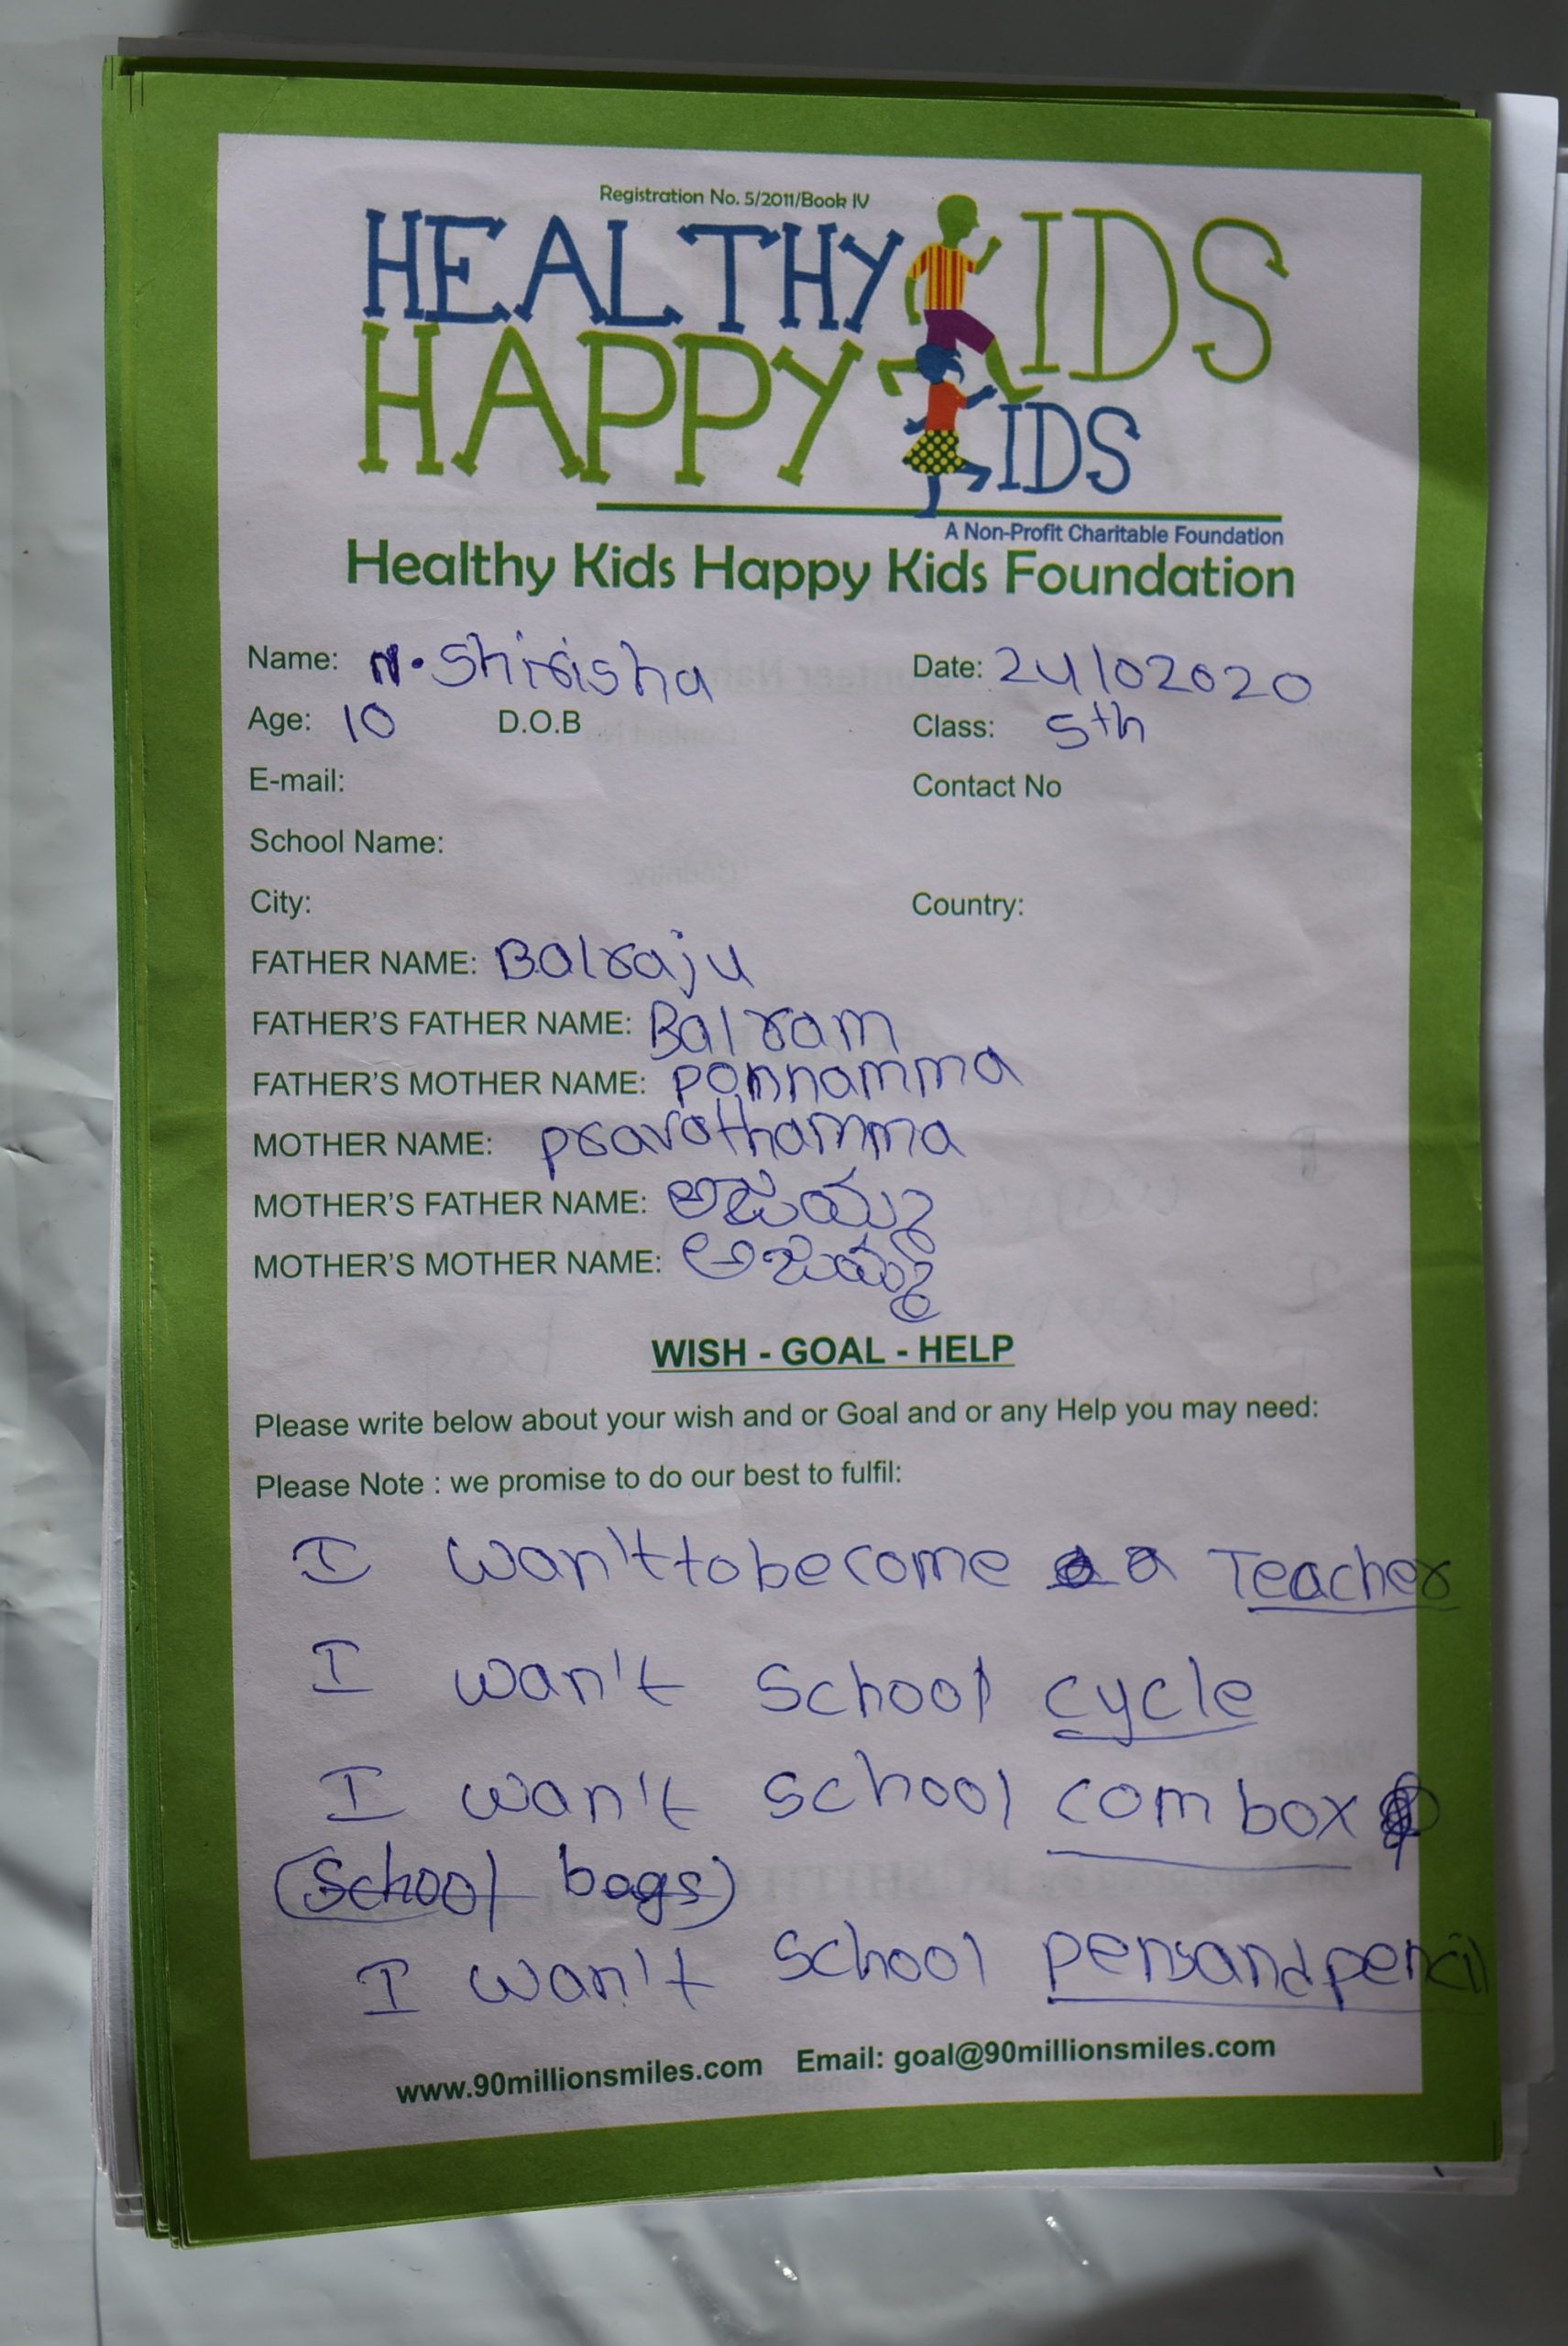 Registration No. 5/2011/Book IV
HEALTHY KIDS
HAPPY KIDS
A Non-Profit Charitable Foundation
Healthy Kids Happy Kids Foundation
Name: N. Shirisha Date: 24/02020
Age: 10 D.O.B Class: 5th
E-mail: Contact No
School Name:
City: Country:
FATHER NAME: Balraju
FATHER'S FATHER NAME: Balram
FATHER'S MOTHER NAME: ponnamma
MOTHER NAME: pravathamma
MOTHER'S FATHER NAME:
MOTHER'S MOTHER NAME:
WISH - GOAL - HELP
Please write below about your wish and or Goal and or any Help you may need:
Please Note : we promise to do our best to fulfil:
I wan't to become a Teacher
I wan't school cycle
I wan't school com box
(School bags)
I wan't school pens and pencil
www.90millionsmiles.com Email: goal@90millionsmiles.com